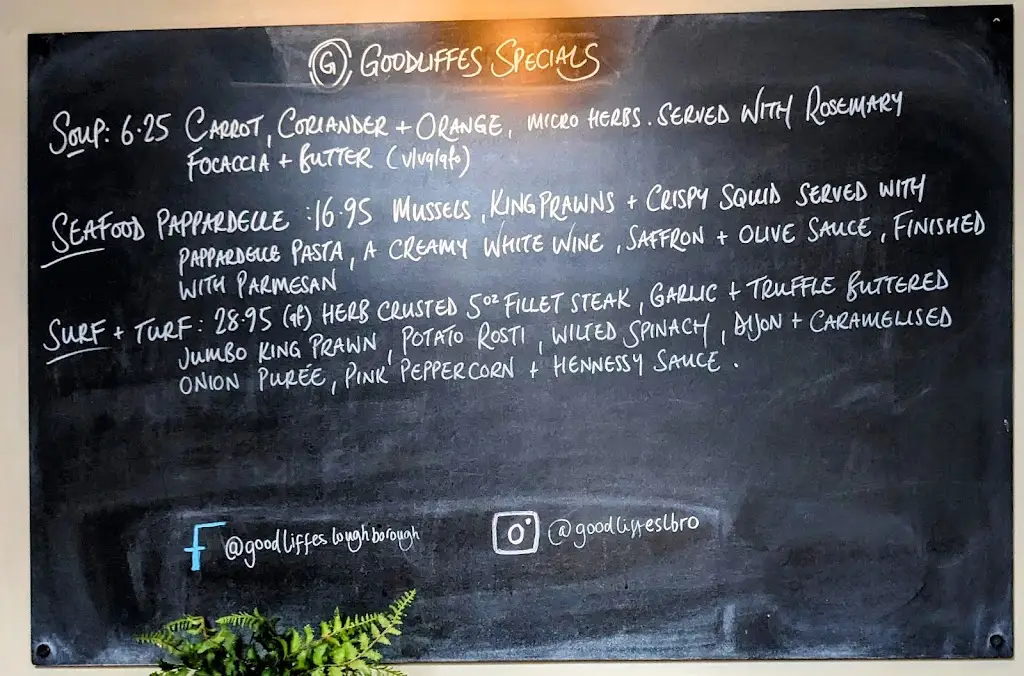 G GOODLIFFES SPECIALS
SOUP: 6.25 CARROT, CORIANDER + ORANGE, MICRO HERBS. SERVED WITH ROSEMARY
FOCACCIA + BUTTER (v/vg/gfo)
SEAFOOD PAPPARDELLE :16.95 MUSSELS, KING PRAWNS + CRISPY SQUID SERVED WITH
PAPPARDELLE PASTA, A CREAMY WHITE WINE, SAFFRON + OLIVE SAUCE, FINISHED
WITH PARMESAN
SURF + TURF: 28.95 (gf) HERB CRUSTED 5oz FILLET STEAK, GARLIC + TRUFFLE BUTTERED
JUMBO KING PRAWN, POTATO ROSTI, WILTED SPINACH, DIJON + CARAMELISED
ONION PURÉE, PINK PEPPERCORN + HENNESSY SAUCE.
f @goodliffesloughborough @goodliffeslbro